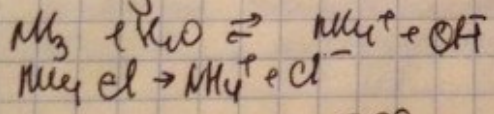 NH₃ + H₂O ⇌ NH₄⁺ + OH⁻
NH₄Cl → NH₄⁺ + Cl⁻